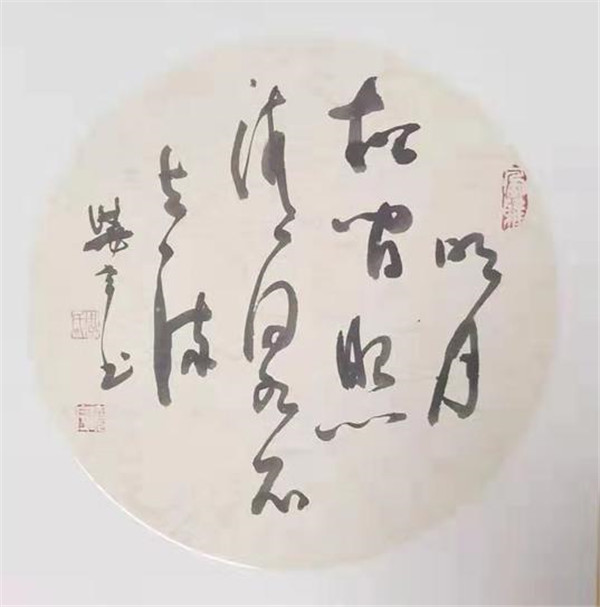 明月
松間照
清泉石
上流